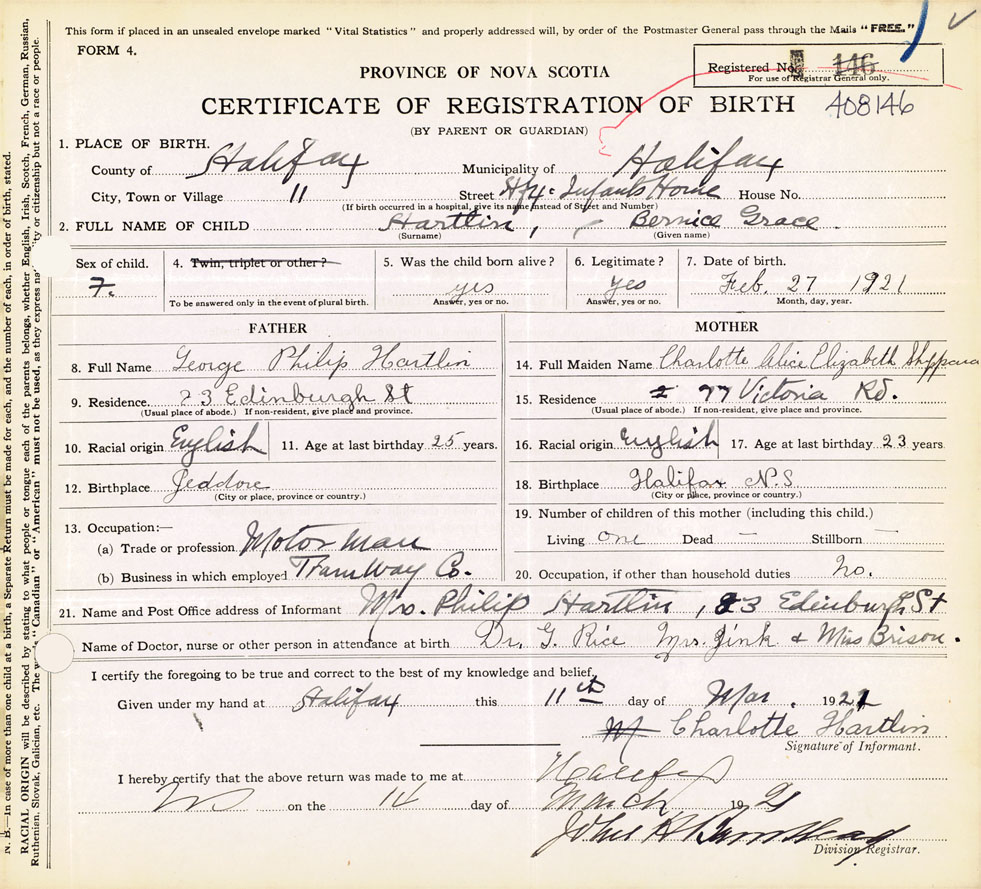 This form if placed in an unsealed envelope marked "Vital Statistics" and properly addressed will, by order of the Postmaster General pass through the Mails "FREE."
FORM 4.
Registered No. 146
For use of Registrar General only.
PROVINCE OF NOVA SCOTIA
CERTIFICATE OF REGISTRATION OF BIRTH 408146
(BY PARENT OR GUARDIAN)
1. PLACE OF BIRTH.
County of Halifax Municipality of Halifax
City, Town or Village 11 Street Hfx Infants Home House No.
(If birth occurred in a hospital, give its name instead of Street and Number)
2. FULL NAME OF CHILD Hartlin, Bernice Grace
(Surname) (Given name)
Sex of child. 4. Twin, triplet or other? 5. Was the child born alive? 6. Legitimate? 7. Date of birth.
F. yes Yes Feb. 27 1921
To be answered only in the event of plural birth. Answer, yes or no. Answer, yes or no. Month, day, year.
FATHER MOTHER
8. Full Name George Philip Hartlin 14. Full Maiden Name Charlotte Alice Elizabeth Sheppard
9. Residence. 23 Edinburgh St 15. Residence 77 Victoria Rd.
(Usual place of abode.) If non-resident, give place and province. (Usual place of abode.) If non-resident, give place and province.
10. Racial origin English 11. Age at last birthday 25 years. 16. Racial origin English 17. Age at last birthday 23 years.
12. Birthplace Jeddore 18. Birthplace Halifax N.S
(City or place, province or country.) (City or place, province or country.)
13. Occupation:— 19. Number of children of this mother (including this child.)
(a) Trade or profession Motorman Living one Dead — Stillborn —
(b) Business in which employed TramWay Co. 20. Occupation, if other than household duties No.
21. Name and Post Office address of Informant Mrs. Philip Hartlin, 23 Edinburgh St
Name of Doctor, nurse or other person in attendance at birth Dr. G. Rice Mrs. Jink & Miss Brison.
I certify the foregoing to be true and correct to the best of my knowledge and belief,
Given under my hand at Halifax this 11th day of Mar. 1921
M Charlotte Hartlin
Signature of Informant.
I hereby certify that the above return was made to me at Halifax
NS on the 14 day of March 1921
Division Registrar.
N. B.—In case of more than one child at a birth, a Separate Return must be made for each, and the number of each, in order of birth, stated.
RACIAL ORIGIN will be described by stating to what people or tongue each of the parents belongs, whether English, Irish, Scotch, French, German, Russian,
Ruthenian, Slovak, Galician, etc. The "Canadian" or "American" must not be used, as they express citizenship but not a race or people.